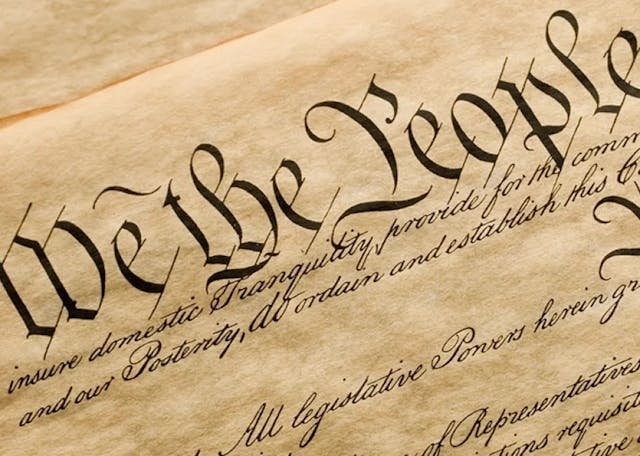 We the People
insure domestic Tranquility, provide for the comm
and our Posterity, do ordain and establish this C
All legislative Powers herein gr
of Representatives
tions requisit